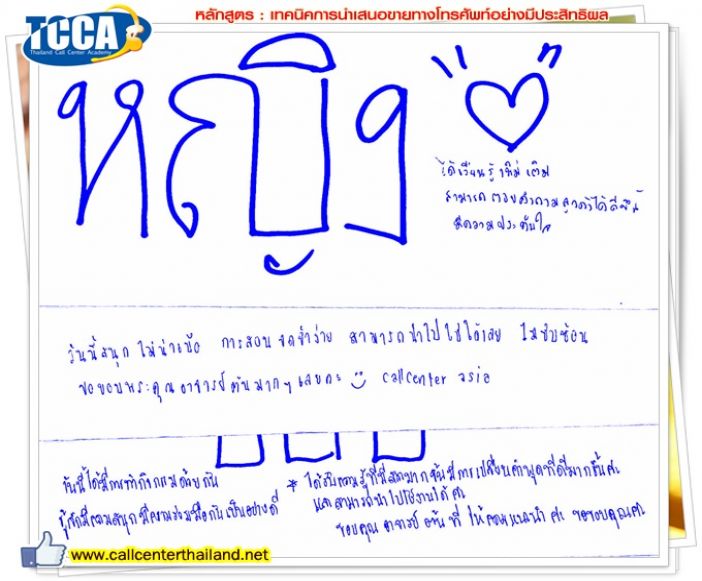 หลักสูตร : เทคนิคการนำเสนอขายทางโทรศัพท์อย่างมีประสิทธิผล
TCCA
Thailand Call Center Academy
หญิง
ได้เรียนรู้เพิ่มเติม
สามารถตอบคำถามลูกค้าได้ดีขึ้น
มีความประทับใจ
วันนี้สนุก ไม่น่าเบื่อ การสอนจดจำง่าย สามารถนำไปใช้ได้เลย ไม่ซับซ้อน
ขอขอบพระคุณอาจารย์ต้นมากๆเลยคะ callcenter asia
วันนี้ได้มีการทำกิจกรรมด้วยกัน
รู้สึกมีความสนุกมีความร่วมมือกันเป็นอย่างดี
* ได้รับความรู้ที่มีมากขึ้นมีการเปลี่ยนคำพูดที่ดีมากขึ้นค่ะ
และสามารถนำไปใช้งานได้ค่ะ
ขอบคุณ อาจารย์ ที่ให้คำแนะนำ ค่ะ ขอขอบคุณค่ะ
www.callcenterthailand.net